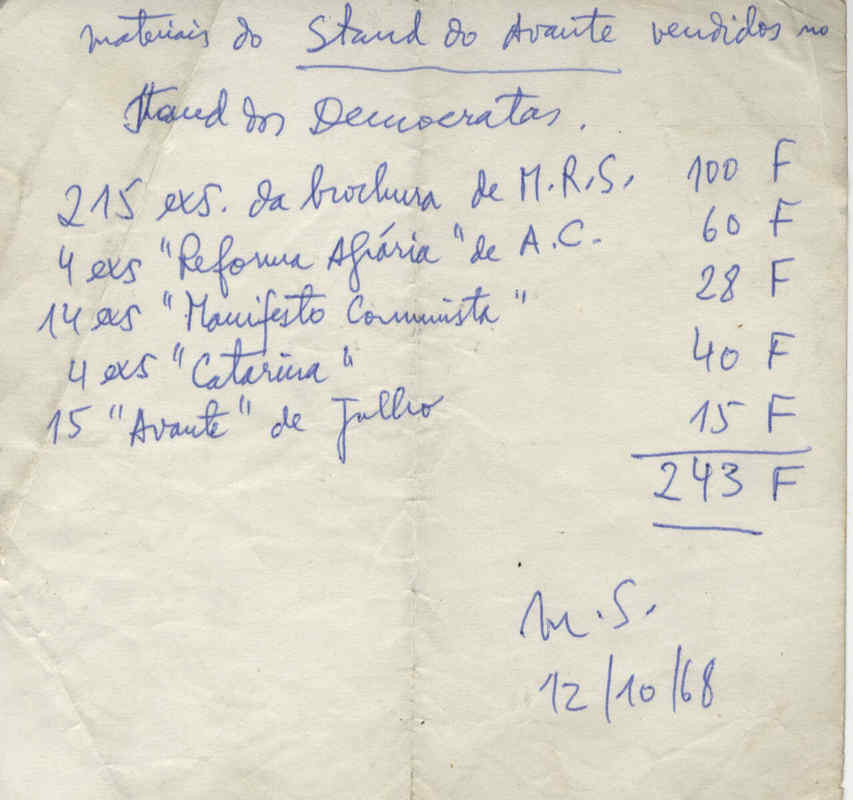 materiais do Stand do Avante vendidos no
Stand dos Democratas.
215 exs. da brochura de M.R.S. 100 F
4 exs "Reforma Agrária" de A.C. 60 F
14 exs "Manifesto Comunista" 28 F
4 exs "Catarina" 40 F
15 "Avante" de Julho 15 F
243 F
M.S.
12/10/68